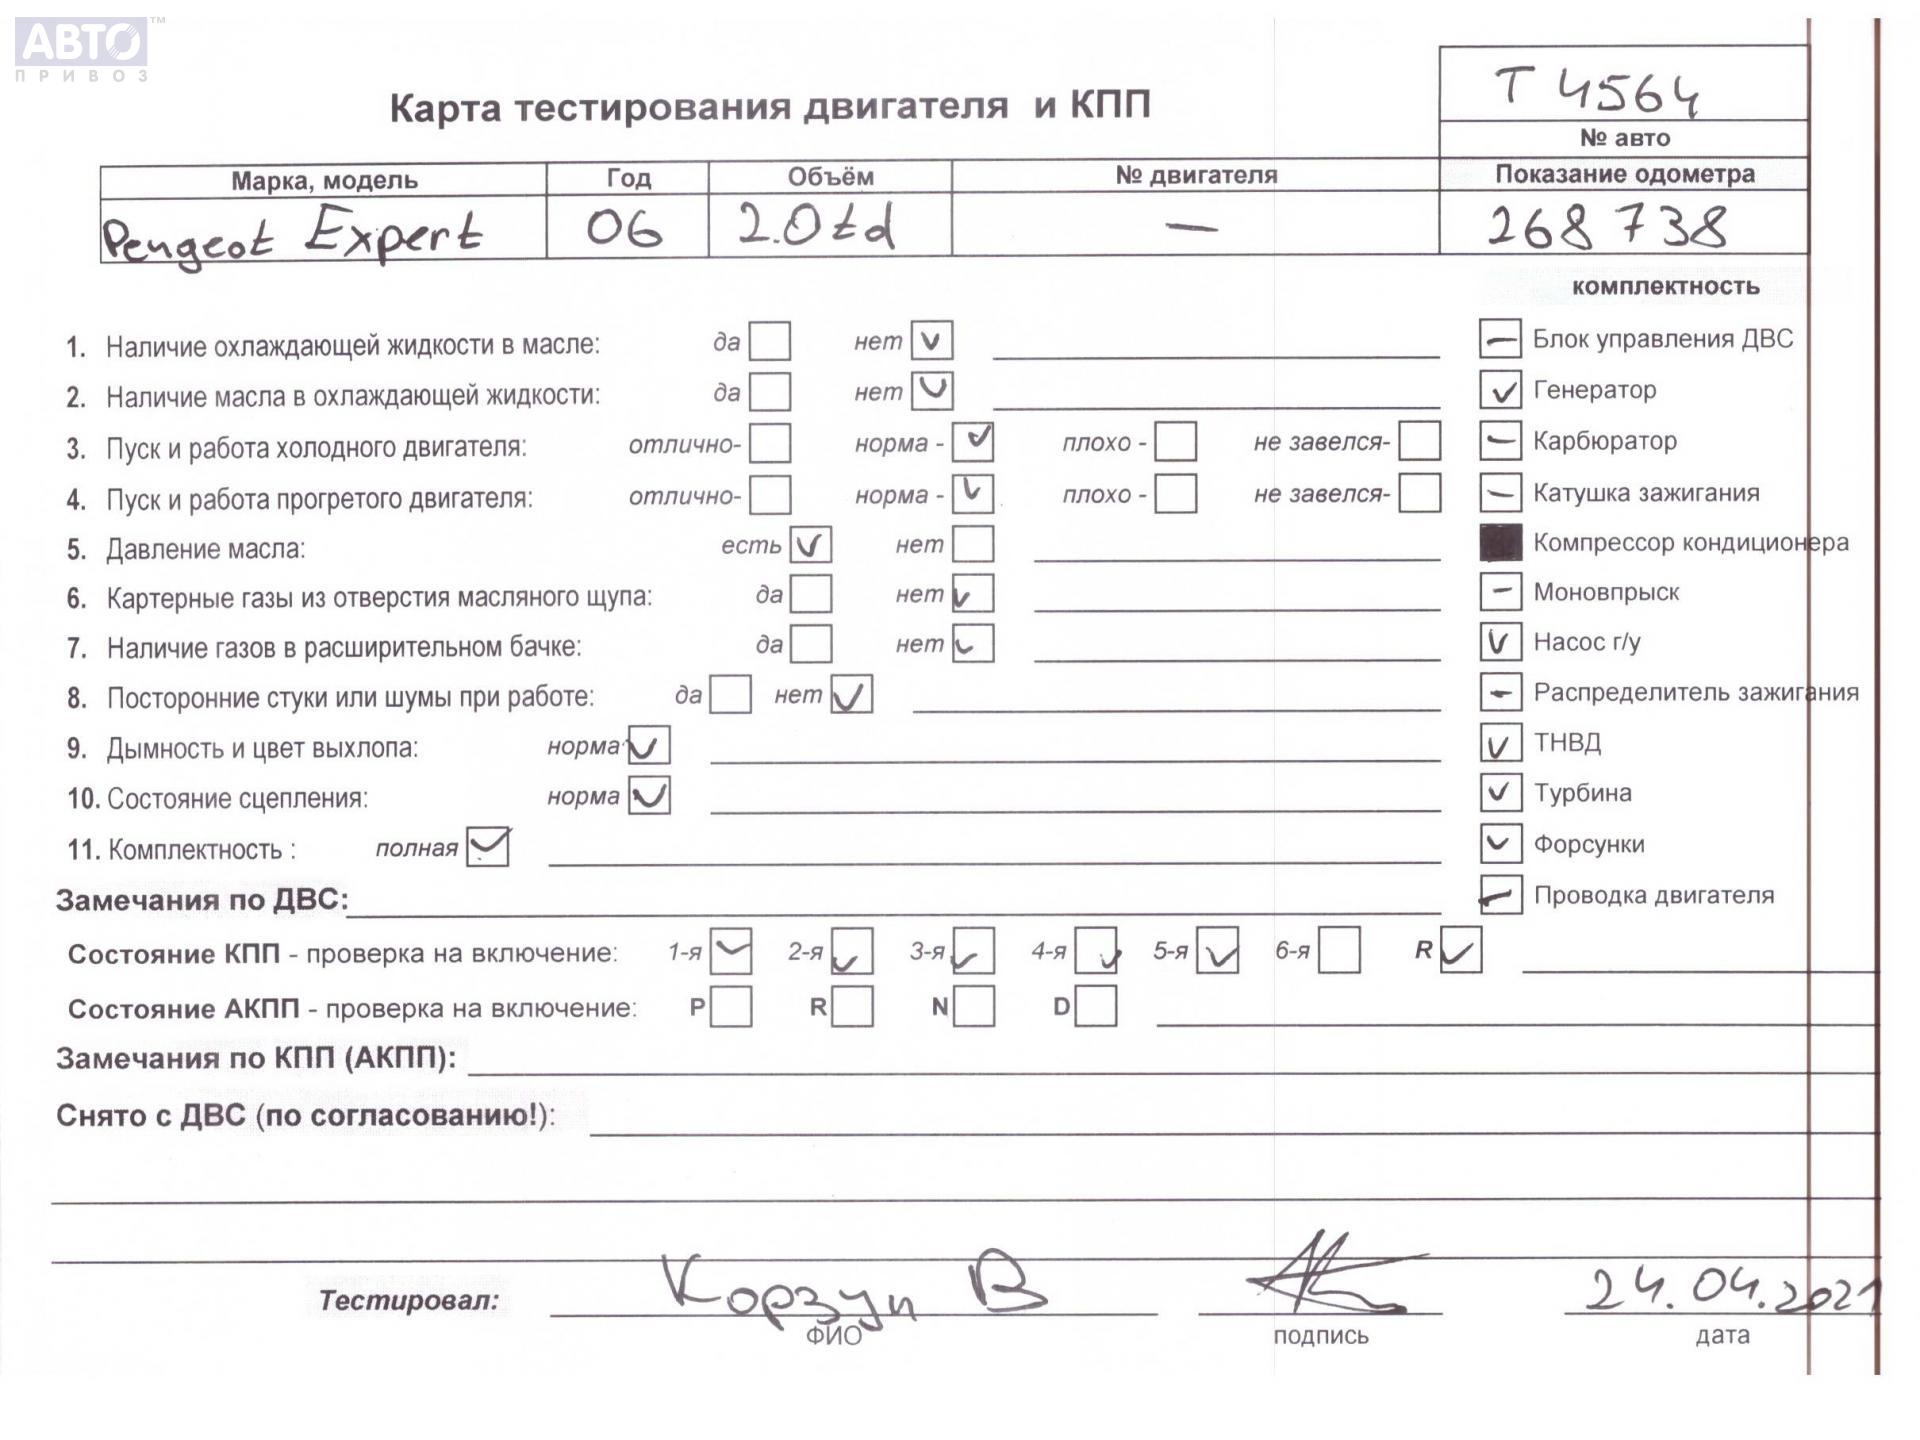 АВТО™
ПРИВОЗ
Т 4564
Карта тестирования двигателя и КПП
№ авто
Марка, модель Год Объём № двигателя Показание одометра
Peugeot Expert 06 2.0td — 268 738
комплектность
1. Наличие охлаждающей жидкости в масле: да нет Блок управления ДВС
2. Наличие масла в охлаждающей жидкости: да нет Генератор
3. Пуск и работа холодного двигателя: отлично- норма - плохо - не завелся- Карбюратор
4. Пуск и работа прогретого двигателя: отлично- норма - плохо - не завелся- Катушка зажигания
5. Давление масла: есть нет Компрессор кондиционера
6. Картерные газы из отверстия масляного щупа: да нет Моновпрыск
7. Наличие газов в расширительном бачке: да нет Насос г/у
8. Посторонние стуки или шумы при работе: да нет Распределитель зажигания
9. Дымность и цвет выхлопа: норма ТНВД
10. Состояние сцепления: норма Турбина
11. Комплектность : полная Форсунки
Замечания по ДВС: Проводка двигателя
Состояние КПП - проверка на включение: 1-я 2-я 3-я 4-я 5-я 6-я R
Состояние АКПП - проверка на включение: P R N D
Замечания по КПП (АКПП):
Снято с ДВС (по согласованию!):
Тестировал: Корзун В 24.04.2021
ФИО подпись дата